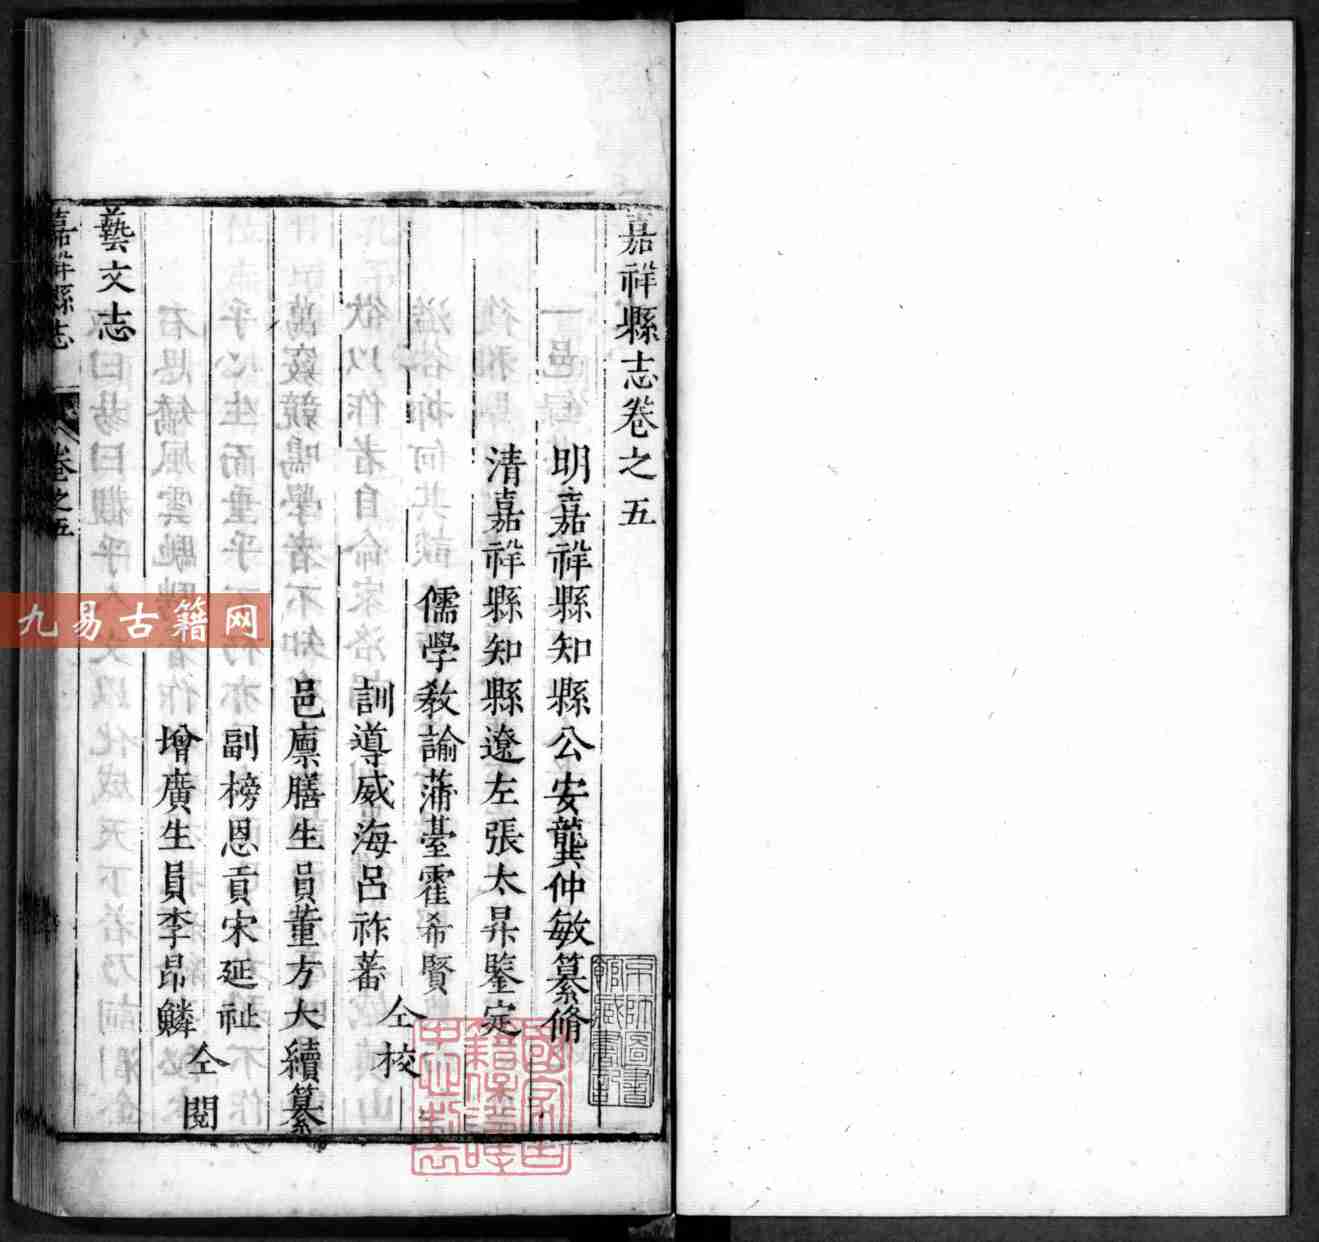 嘉祥縣志卷之五
明嘉祥縣知縣公安龔仲敏纂脩
清嘉祥縣知縣遼左張太昇鑒定
儒學教諭蒲臺霍希賢
訓導威海呂祚蕃
仝校
邑廪膳生員董方大續纂
副榜恩貢宋延祉
增廣生員李昂鱗
仝閱
藝文志
嘉祥縣志
卷之五
京師圖書館藏書記
九易古籍网